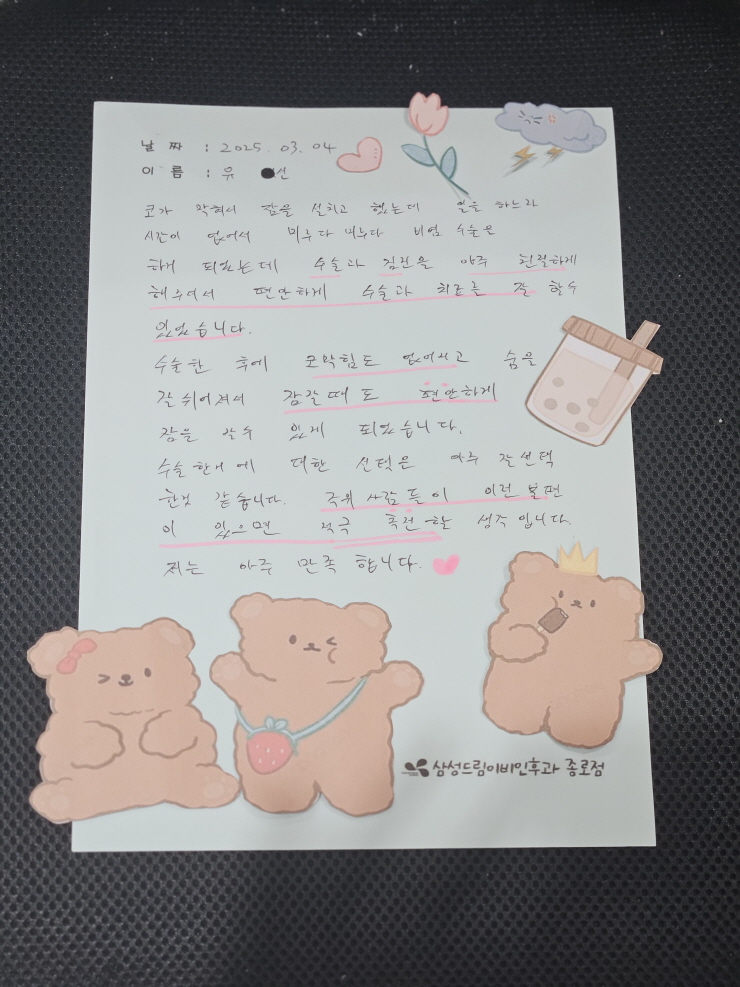 날 짜 : 2025. 03. 04
이 름 : 유 ●선
코가 막혀서 잠을 설치고 했는데 일을 하느라
시간이 없어서 미루다 미루다 비염 수술은
하게 되었는데 수술과 검진을 아주 친절하게
해주셔서 편안하게 수술과 치료를 잘 할수
있었습니다.
수술한 후에 코막힘도 없어지고 숨을
잘 쉬어져서 잠잘때도 편안하게
잠을 잘수 있게 되었습니다.
수술한거에 대한 선택은 아주 잘선택
한것 같습니다. 주위 사람들이 이런 불편
이 있으면 적극 추천할 생각입니다.
저는 아주 만족합니다.
삼성드림이비인후과 종로점